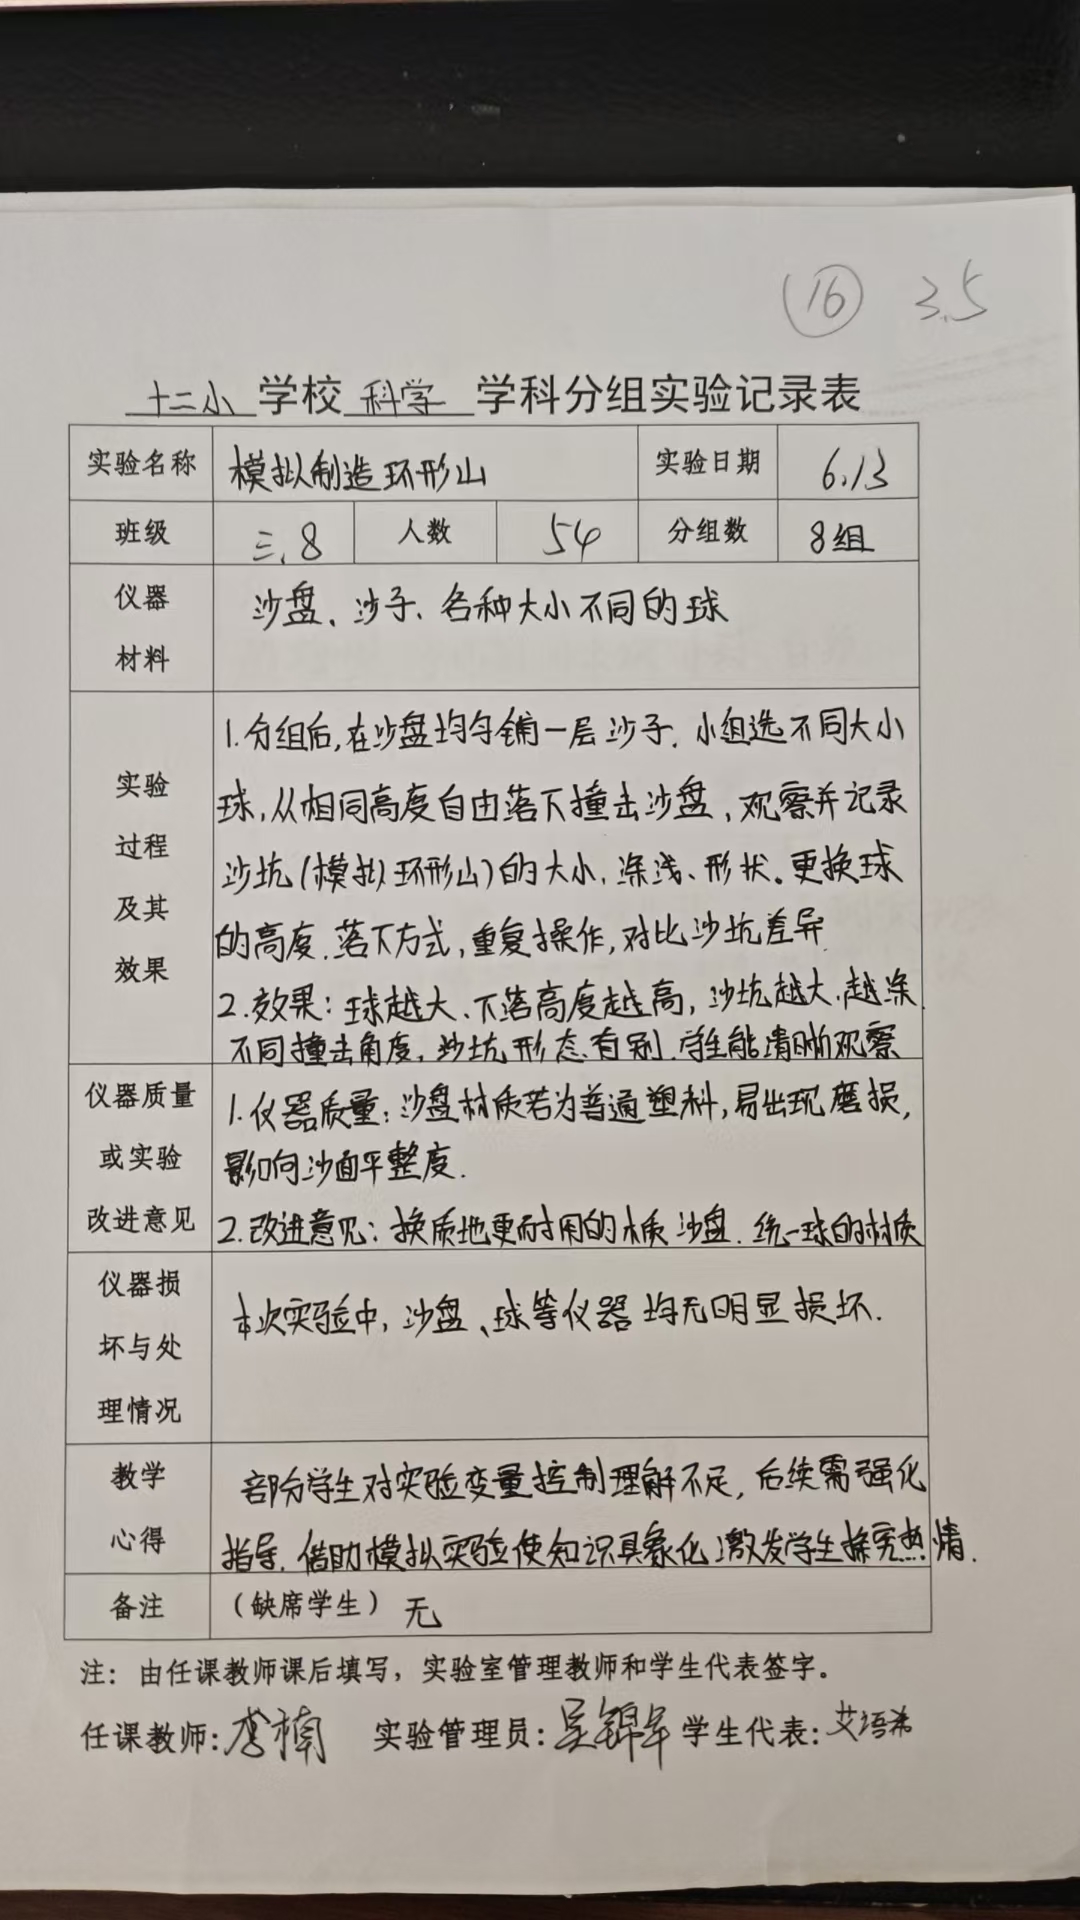 ⑯ 3.5
十二小学校科学学科分组实验记录表
实验名称 模拟制造环形山 实验日期 6.13
班级 三.8 人数 54 分组数 8组
仪器材料 沙盘、沙子、各种大小不同的球
实验过程及其效果
1.分组后,在沙盘均匀铺一层沙子.小组选不同大小
球,从相同高度自由落下撞击沙盘,观察并记录
沙坑(模拟环形山)的大小、深浅、形状。更换球
的高度.落下方式,重复操作,对比沙坑差异
2.效果:球越大、下落高度越高,沙坑越大、越深.
不同撞击角度,沙坑形态有别.学生能清晰观察
仪器质量或实验改进意见
1.仪器质量:沙盘材质若为普通塑料,易出现磨损,
影响沙面平整度.
2.改进意见:换质地更耐用的木质沙盘.统一球的材质
仪器损坏与处理情况
本次实验中,沙盘、球等仪器均无明显损坏.
教学心得
部分学生对实验变量控制理解不足,后续需强化
指导.借助模拟实验使知识具象化,激发学生探究热情.
备注 (缺席学生) 无
注:由任课教师课后填写,实验室管理教师和学生代表签字。
任课教师:李楠 实验管理员:吴锦 学生代表:艾语